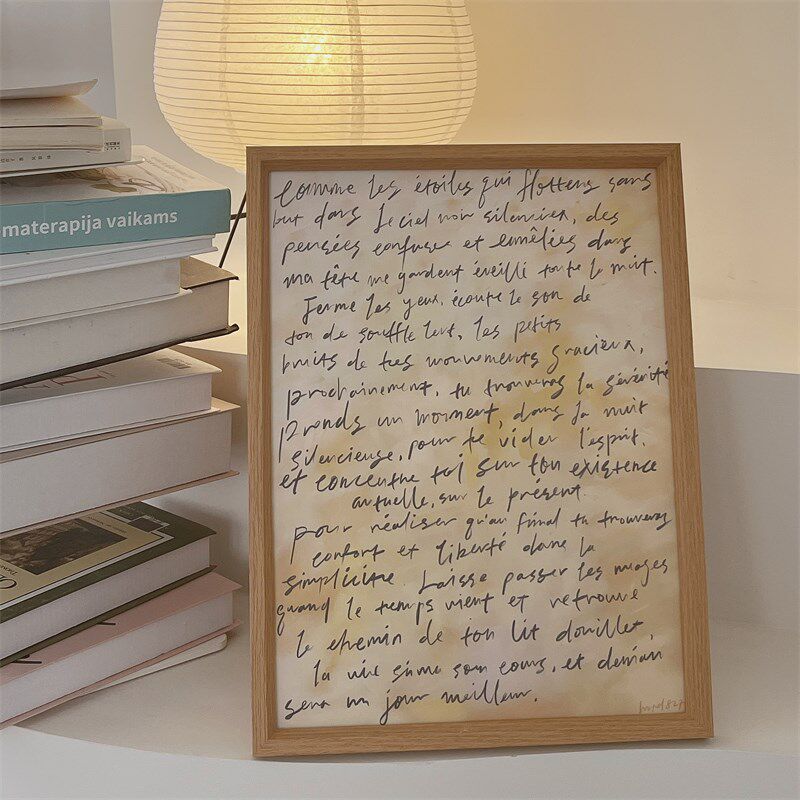 materapija vaikams
Comme les étoiles qui flottens sans
but dans le ciel noir silencieux, des
pensées confuses et emêlées dans
ma tête me gardent éveillé toute la nuit.
Ferme les yeux, écoute le son de
ton de souffle lent, les petits
bruits de tes mouvements gracieux,
prochainement, tu trouveras la sérérité
Prends un moment, dans la nuit
silencieuse, pour te vider l'esprit.
et concentre toi sur ton existence
actuelle, sur le présent
pour réaliser qu'au final tu trouveras
confort et liberté dans la
simplicitre. Laisse passer les nuages
quand le temps vient et retrouve
le chemin de ton lit douillet,
la vie suive son cours, et demain
sera un jour meilleur.